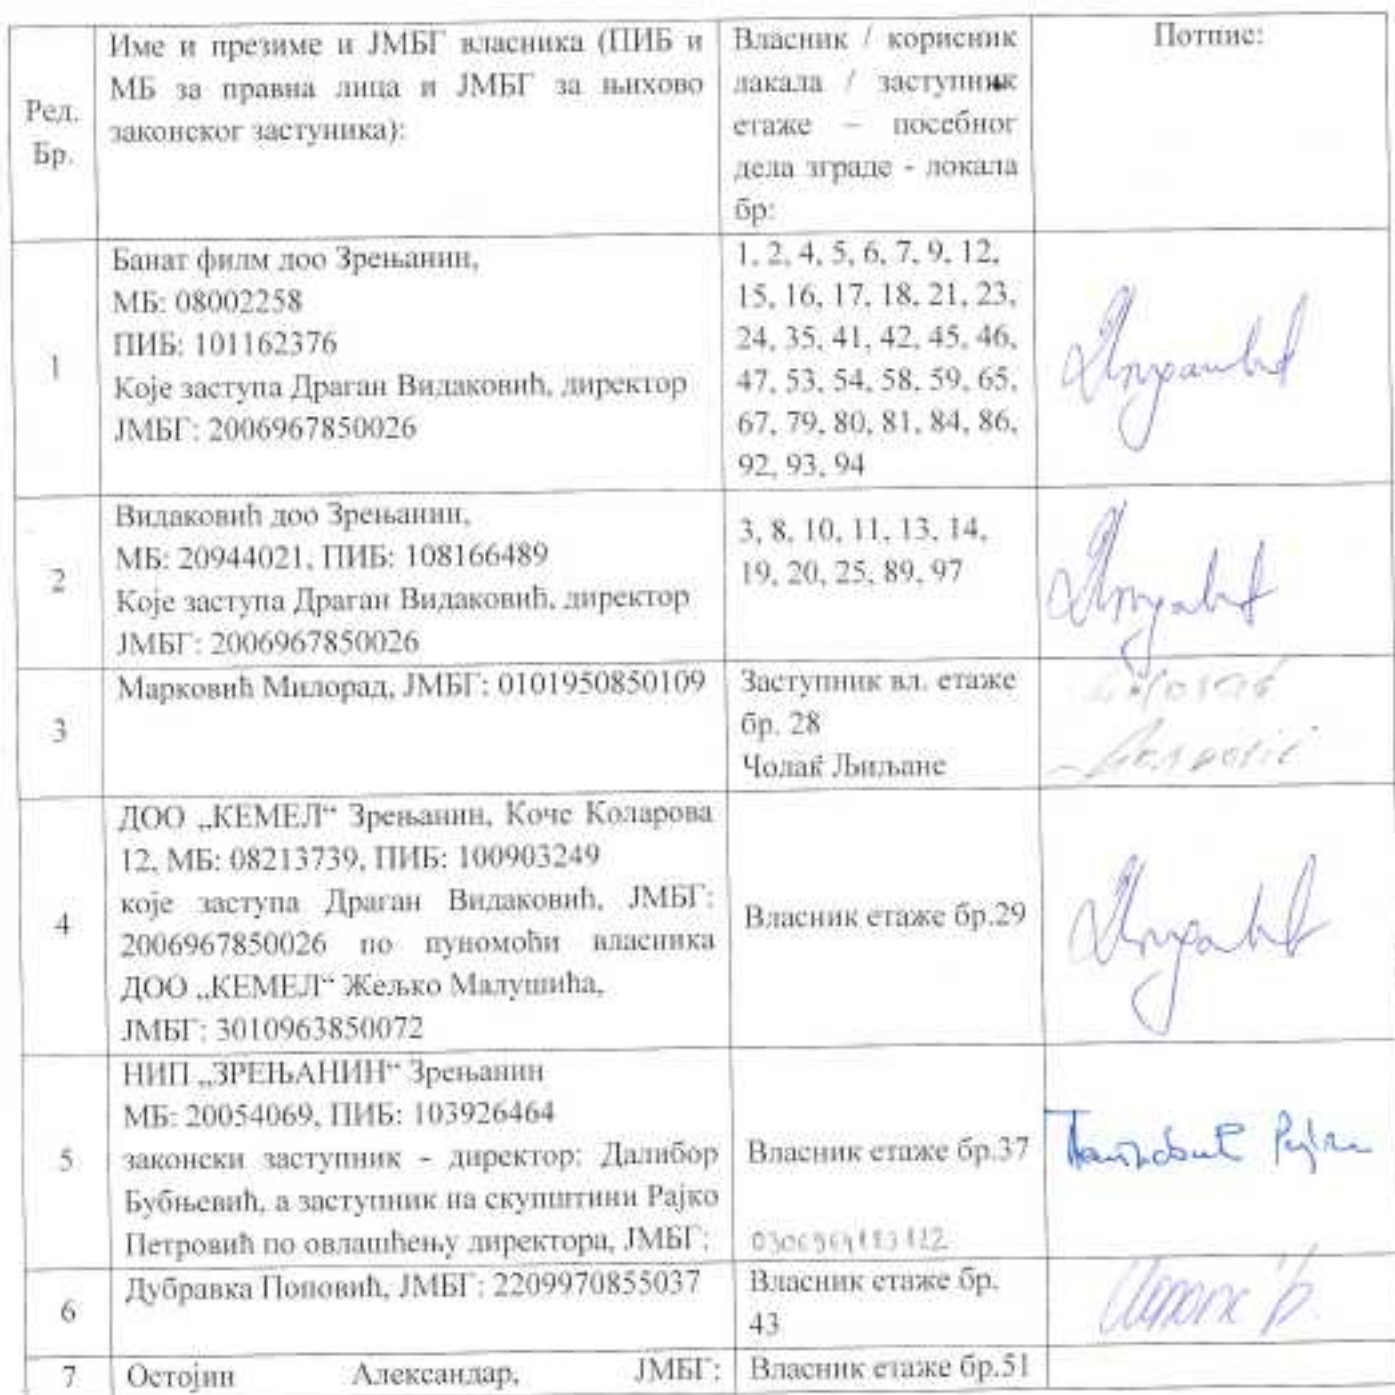 Ред.
Бр.
Име и презиме и ЈМБГ власника (ПИБ и
МБ за правна лица и ЈМБГ за њихово
законског заступика):
Власник / корисник
лакала / заступник
етаже – посебног
дела зграде - локала
бр:
Потпис:
1
Банат филм доо Зрењанин,
МБ: 08002258
ПИБ: 101162376
Које заступа Драган Видаковић, директор
ЈМБГ: 2006967850026
1, 2, 4, 5, 6, 7, 9, 12,
15, 16, 17, 18, 21, 23,
24, 35, 41, 42, 45, 46,
47, 53, 54, 58, 59, 65,
67, 79, 80, 81, 84, 86,
92, 93, 94
2
Видаковић доо Зрењанин,
МБ: 20944021, ПИБ: 108166489
Које заступа Драган Видаковић, директор
ЈМБГ: 2006967850026
3, 8, 10, 11, 13, 14,
19, 20, 25, 89, 97
3
Марковић Милорад, ЈМБГ: 0101950850109
Заступник вл. етаже
бр. 28
Чолаќ Љиљане
4
ДОО „КЕМЕЛ“ Зрењанин, Коче Коларова
12, МБ: 08213739, ПИБ: 100903249
које заступа Драган Видаковић, ЈМБГ:
2006967850026 по пуномоћи власника
ДОО „КЕМЕЛ“ Жељко Малушића,
ЈМБГ: 3010963850072
Власник етаже бр.29
5
НИП „ЗРЕЊАНИН“ Зрењанин
МБ: 20054069, ПИБ: 103926464
законски заступник - директор: Далибор
Бубњевић, а заступник на скупштини Рајко
Петровић по овлашћењу директора, ЈМБГ:
Власник етаже бр.37
6
Дубравка Поповић, ЈМБГ: 2209970855037
Власник етаже бр.
43
7
Остојин Александар, ЈМБГ:
Власник етаже бр.51